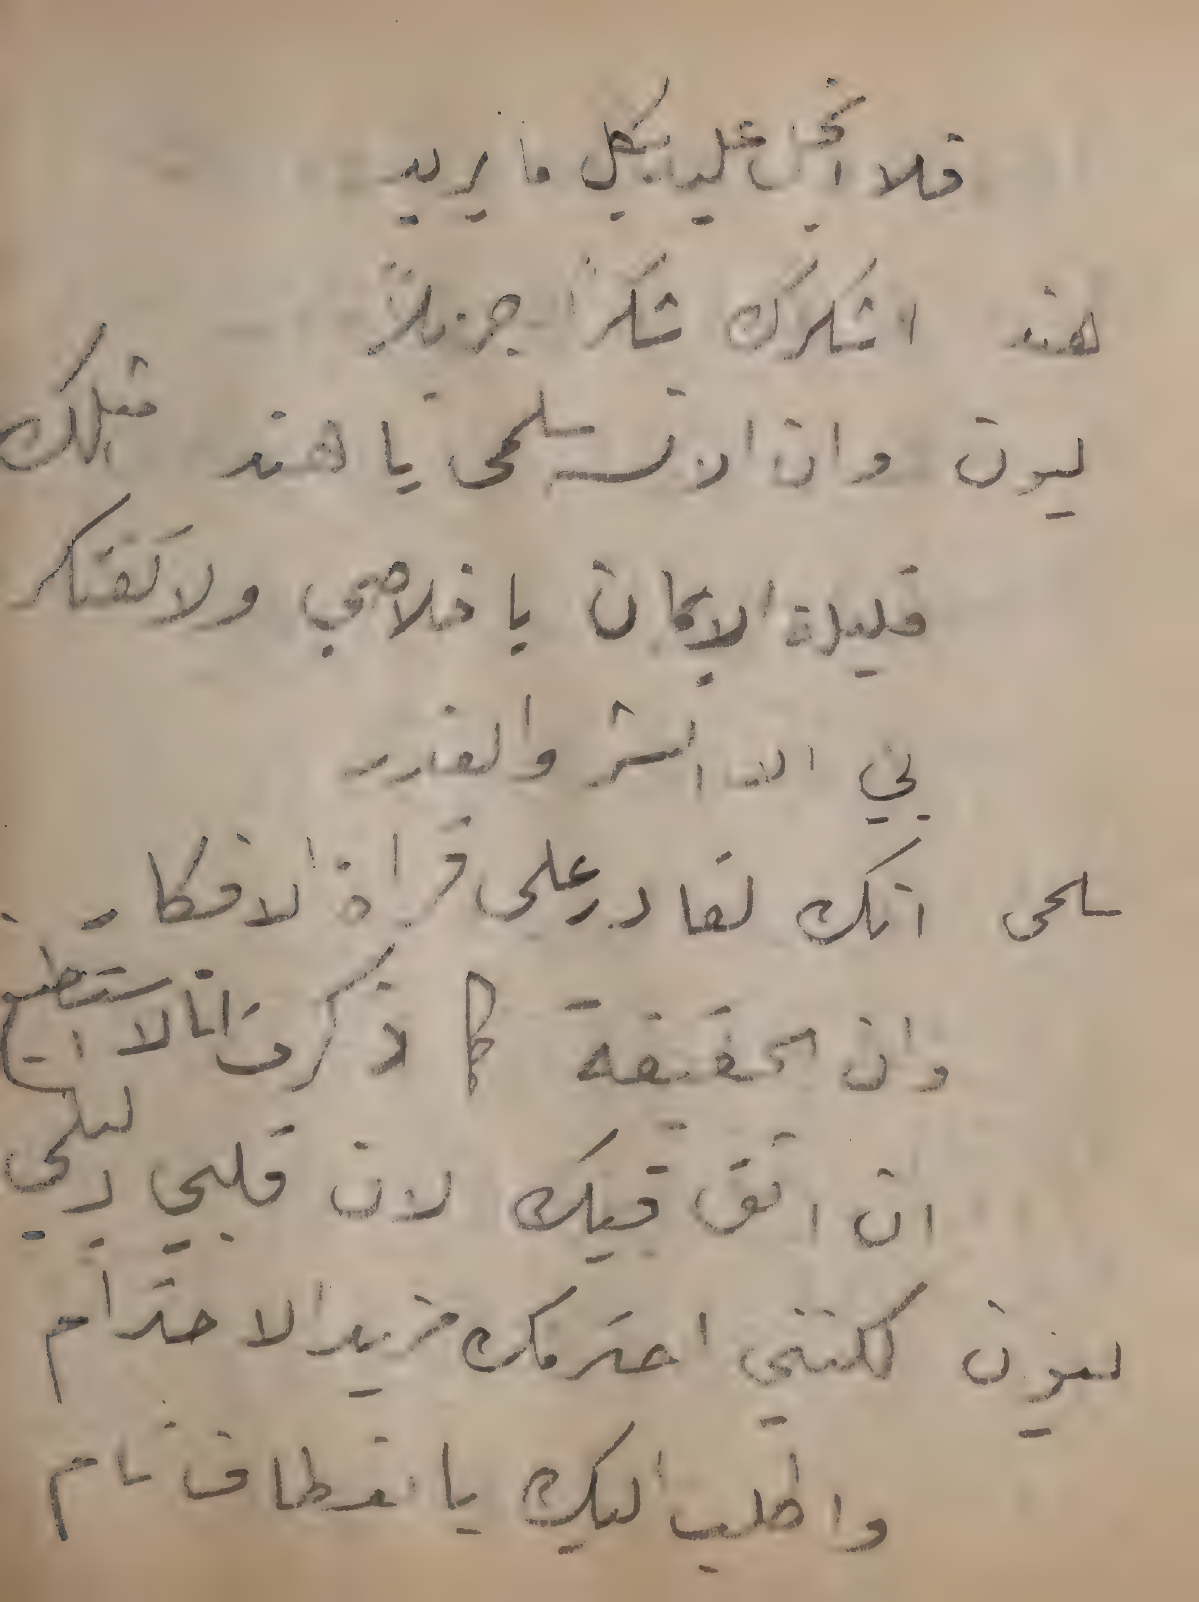 فلا انجل عليه بكل ما يريد
هند اشكرك شكراً جزيلاً
ليون وان الانسه سلمى يا هند مثلك
قليلة الايمان باخلاصي ولا تفتكر
بي الا الشر والغدر
سلمى انك لقادر على قراة الافكار
وان الحقيقة كما ذكرت انا لا استطيع
ان اثق فيك لان قلبي دليلي
ليون لكنني احترمك مزيد الاحترام
واطلب اليك بانعطاف تام